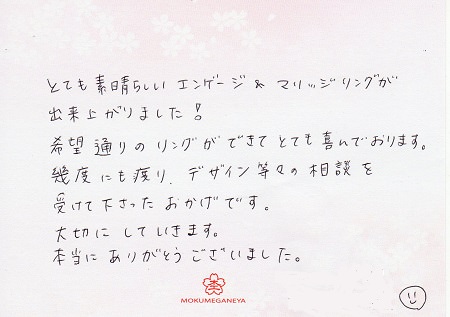 とても素晴らしい エンゲージ & マリッジリングが
出来上がりました!
希望通りのリングができてとても喜んでおります。
幾度にも渡り、デザイン等々の相談を
受けて下さったおかげです。
大切にしていきます。
本当にありがとうございました。
MOKUMEGANEYA